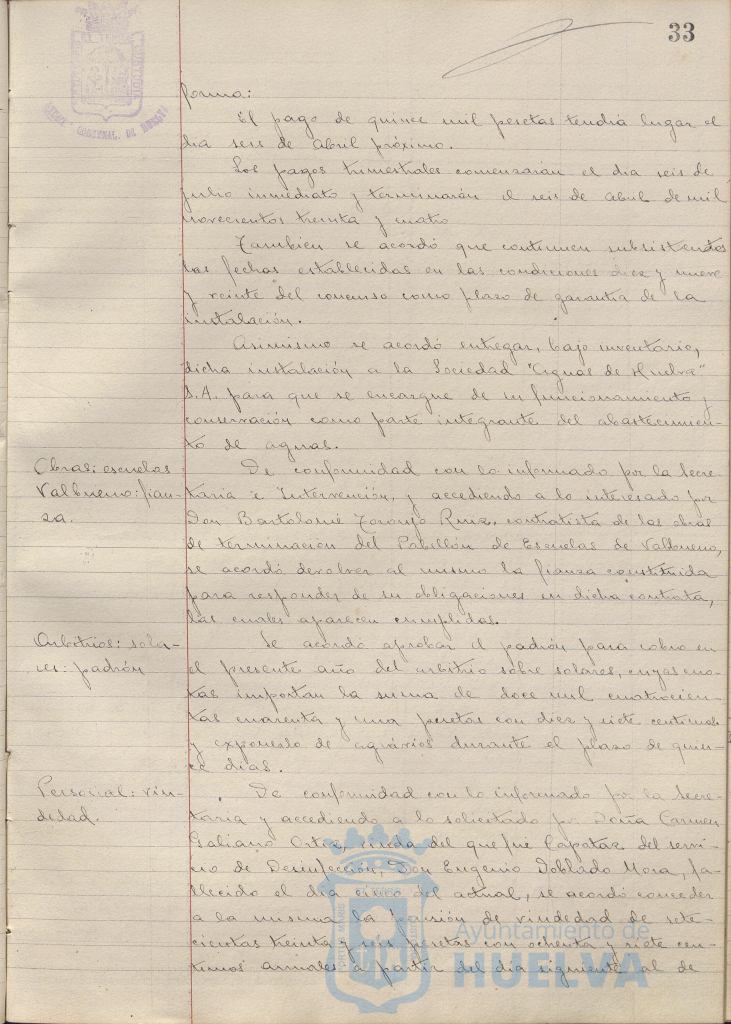 33
forma:
El pago de quince mil pesetas tendrá lugar el
dia seis de Abril próximo.
Los pagos trimestrales comenzarán el dia seis de
Julio inmediato y terminarán el seis de Abril de mil
novecientos treinta y cuatro
Tambien se acordó que continuen subsistentes
las fechas establecidas en las condiciones diez y nueve
y veinte del concurso como plazo de garantia de la
instalación.
Asimismo se acordó entregar, bajo inventario,
dicha instalación a la Sociedad "Aguas de Huelva"
S.A. para que se encargue de su funcionamiento y
conservación como parte integrante del abastecimien-
to de aguas.
Obras: escuelas
Valbueno: fian-
za.
De conformidad con lo informado por la Secre-
taria e Intervención, y accediendo a lo interesado por
Don Bartolomé Toronjo Ruiz, contratista de las obras
de terminación del Pabellón de Escuelas de Valbueno,
se acordó devolver al mismo la fianza constituida
para responder de su obligaciones en dicha contrata,
las cuales aparecen cumplidas.
Arbitrios: sola-
res: padrón
Se acordó aprobar el padrón para cobro en
el presente año del arbitrio sobre solares, cuyas cuo-
tas importan la suma de doce mil cuatrocien-
tas cuarenta y una pesetas con diez y siete centimos
y exponerlo de agravios durante el plazo de quin-
ce dias.
Personal: viu-
dedad.
De conformidad con lo informado por la Secre-
taria y accediendo a lo solicitado por Doña Carmen
Galiano Ortiz, viuda del que fué Capataz del servi-
cio de Desinfección, Don Eugenio Doblado Mora, fa-
llecido el dia cinco del actual, se acordó conceder
a la misma la pensión de viudedad de sete-
cientas treinta y seis pesetas con ochenta y siete cen-
timos anuales a partir del dia siguiente al de
Ayuntamiento de
HUELVA